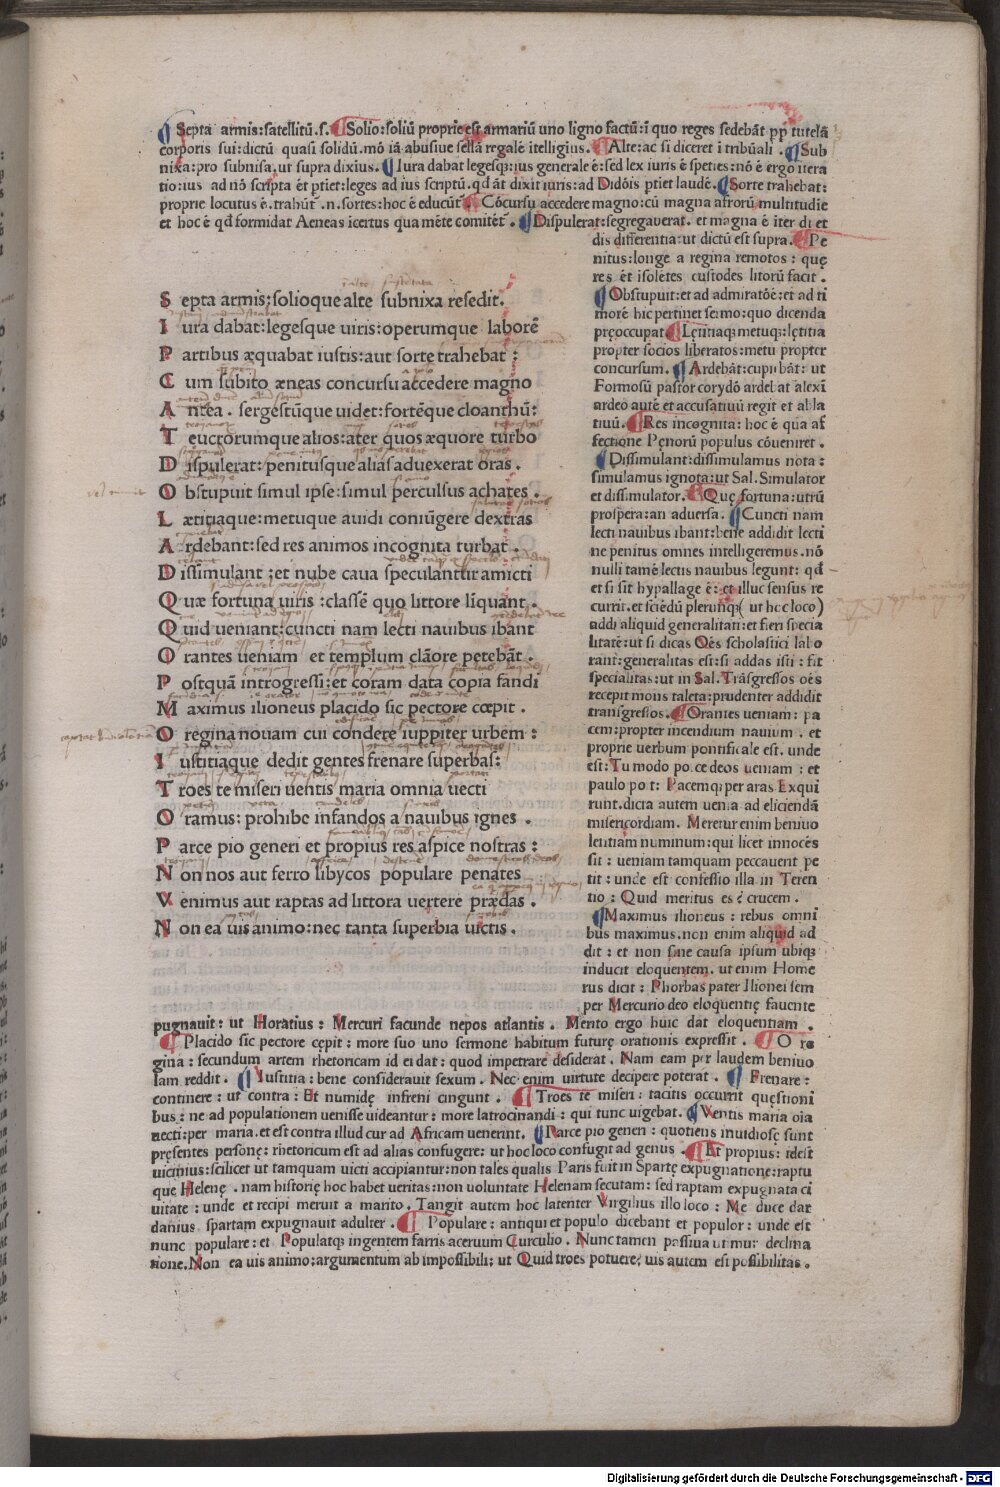 Septa armis:satellitū.s. Solio:soliū proprie est armariū uno ligno factū:ī quo reges sedebāt pp tutelā
corporis sui:dictū quasi solidū.mō iā abusiue sellā regalē itelligius. Alte:ac si diceret ī tribūali. Sub
nixa:pro subnisa.ut supra dixius. Iura dabat legesq;:ius generale ē:sed lex iuris ē speties:nō ē ergo itera
tio:ius ad nō scripta ēt ptiet:leges ad ius scriptū.qd āt dixit iuris:ad Didōis ptiet laudē. Sorte trahebat:
proprie locutus ē.trahūt .n.sortes:hoc ē educūt. Cōcursu accedere magno:cū magna afrorū multitudie
et hoc ē qd formidat Aeneas icertus qua mēte comitēt. Dispulerat:segregauerat. et magna ē iter di et
dis differentia:ut dictū est supra. Pe
nitus:longe a regina remotos : quę
res ēt isoletes custodes litorū facit .
Obstupuit:et ad admiratōē:et ad ti
morē hic pertinet sermo:quo dicenda
pręoccupat. Lętitiaq; metuq;:lętitia
propter socios liberatos:metu propter
concursum. Ardebāt:cupiebāt: ut
Formosū pastor corydō ardebat alexī
ardeo autē et accusatiuū regit et abla
tiuū. Res incognita: hoc ē qua af
fectione Pęnorū populus cōueniret.
Dissimulant:dissimulamus nota:
simulamus ignota:ut Sal. Simulator
et dissimulator. Quę fortuna:utrū
prospera:an aduersa. Cuncti nam
lecti nauibus ibant:bene addidit lecti
ne penitus omnes intelligeremus.nō
nulli tamē lectis nauibus legunt: qd
et si sit hypallage ē: et illuc sensus re
currit.et sciēdū plerunq;( ut hoc loco)
addi aliquid generalitati:et fieri specia
litatē:ut si dicas Oēs scholastici labo
rant:generalitas est:si addas isti : fit
specialitas:ut in Sal. Trāsgressos oēs
recepit mons taleta:prudenter addidit
transgressos. Orantes ueniam: pa
cem:propter incendium nauium . et
proprie uerbum pontificale est. unde
est: Tu modo posce deos ueniam : et
paulo post: Pacemq; per aras Exqui
runt.dicta autem uenia ad eliciendā
misericordiam. Meretur enim beniuo
lentiam numinum:qui licet innocēs
sit : ueniam tamquam peccauent pe
tit : unde est confessio illa in Teren
tio : Quid meritus es ē crucem .
Maximus ilioneus : rebus omni
bus maximus.non enim aliquid ad
dit : et non sine causa ipsum ubiq;
inducit eloquentem. ut enim Home
rus dicit : Phorbas pater Ilionei sem
per Mercurio deo eloquentię fauente
Septa armis:solioque alte subnixa resedit.
Iura dabat:legesque uiris:operumque laborē
Partibus æquabat iustis:aut sorte trahebat :
Cum subito æneas concursu accedere magno
Antea . sergestūque uidet:fortēque cloanthū:
Teucrorumque alios:ater quos æquore turbo
Dispulerat:penitusque alias aduexerat oras .
Obstupuit simul ipse:simul perculsus achates .
Lætitiaque:metuque auidi coniūgere dextras
Ardebant:sed res animos incognita turbat .
Dissimulant :et nube caua speculantur amicti
Quæ fortuna uiris :classē quo littore linquant .
Quid ueniant:cuncti nam lecti nauibus ibant
Orantes ueniam et templum clāore petebāt .
Postquā introgressi:et coram data copia fandi
Maximus ilioneus placido sic pectore cœpit .
O regina nouam cui condere iuppiter urbem :
Iustitiaque dedit gentes frenare superbas:
Troes te miseri uentis maria omnia uecti
Oramus: prohibe infandos a nauibus ignes .
Parce pio generi et propius res aspice nostras :
Non nos aut ferro libycos populare penates
Venimus aut raptas ad littora uertere prædas .
Non ea uis animo:nec tanta superbia uictis .
pugnauit: ut Horatius : Mercuri facunde nepos atlantis . Merito ergo huic dat eloquentiam .
Placido sic pectore cępit : more suo uno sermone habitum futurę orationis expressit . O re
gina : secundum artem rhetoricam id ei dat : quod impetrare desiderat . Nam eam per laudem beniuo
lam reddit . Iustitia : bene considerauit sexum . Nec enim uirtute decipere poterat . Frenare :
continere : ut contra : Et numidę infreni cingunt . Troes te miseri : tacitis occurrit quęstioni
bus : ne ad populationem uenisse uideantur : more latrocinandi : qui tunc uigebat. Ventis maria oīa
uecti:per maria.et est contra illud cur ad Africam uenerint. Parce pio generi : quotiens inuidiosę sunt
pręsentes personę: rhetoricum est ad alias confugere: ut hoc loco confugit ad genus . Et propius: idest
uicinius:scilicet ut tamquam uicti accipiantur:non tales qualis Paris fuit in Spartę expugnatione:raptu
que Helenę . nam historię hoc habet ueritas:non uoluntate Helenam secutam: sed raptam expugnata ci
uitate : unde et recipi meruit a marito . Tangit autem hoc latenter Virgilius illo loco : Me duce dar
danius spartam expugnauit adulter . Populare : antiqui et populo dicebant et populor : unde est
nunc populare : et Populatq; ingentem farris aceruum Curculio . Nunc tamen passiua utimur declina
tione.Non ea uis animo:argumentum ab impossibili: ut Quid troes potuere: uis autem est possibilitas .
Digitalisierung gefördert durch die Deutsche Forschungsgemeinschaft - DFG